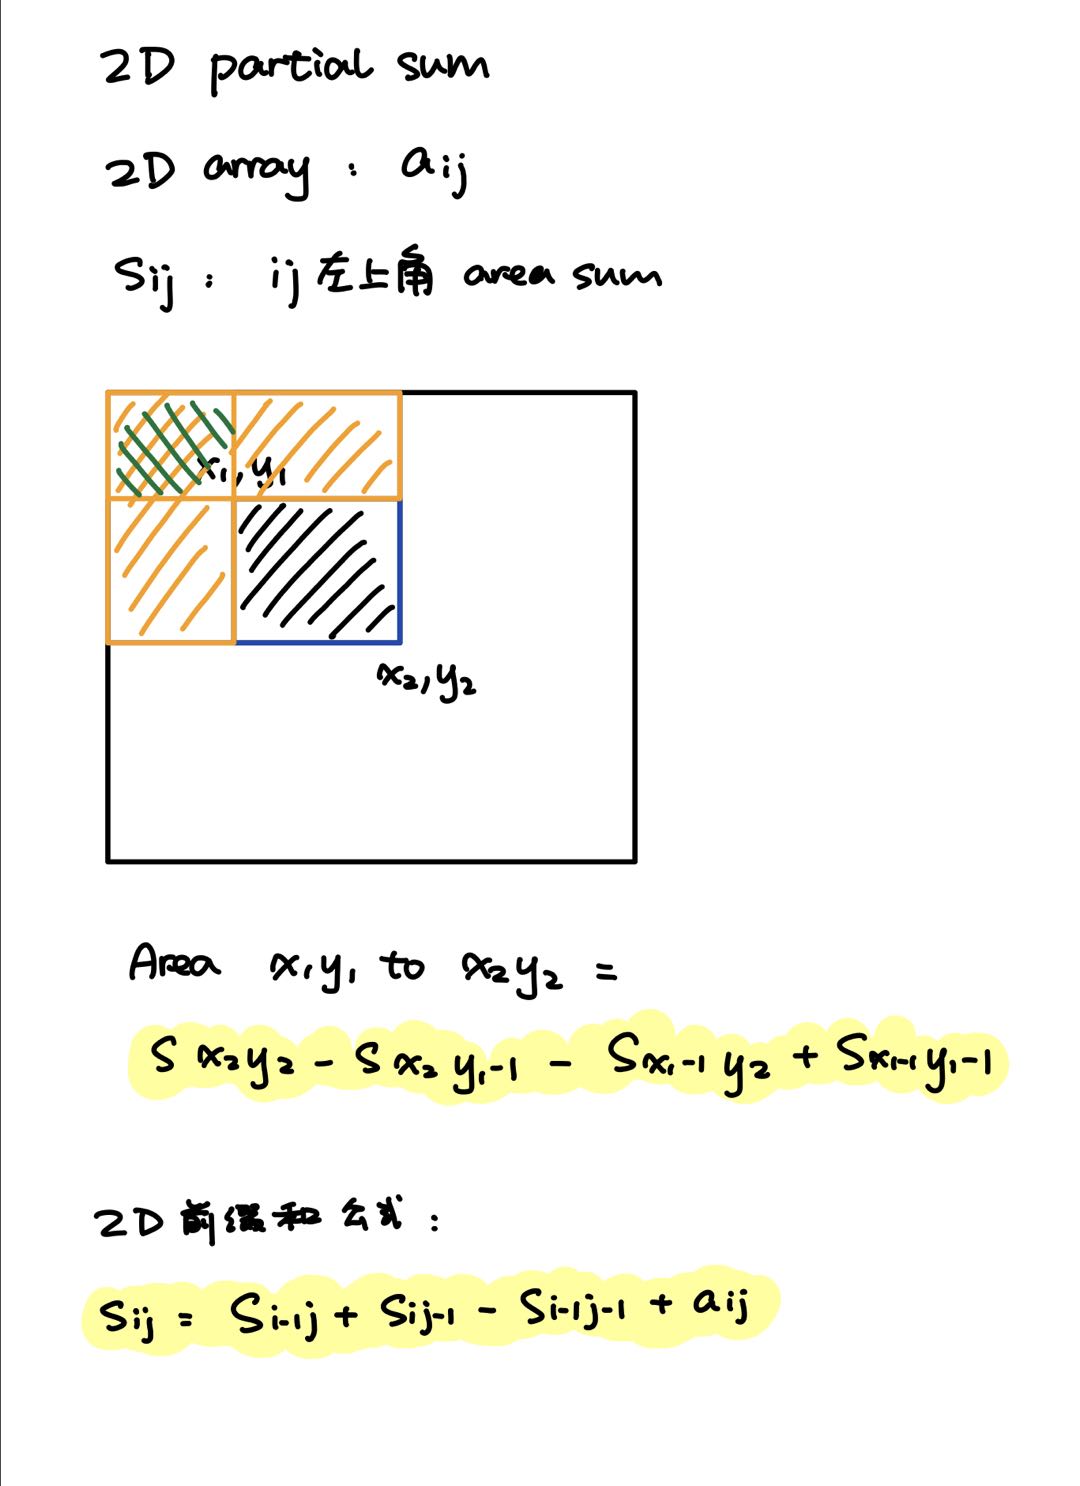 2D partial sum
2D array : aij
Sij : ij 左上角 area sum
x₁,y₁
x₂,y₂
Area x₁y₁ to x₂y₂ =
S x₂y₂ - S x₂ y₁-1 - Sx₁-1 y₂ + Sx₁-1 y₁-1
2D 前缀和 公式 :
Sij = Si-1j + Sij-1 - Si-1j-1 + aij